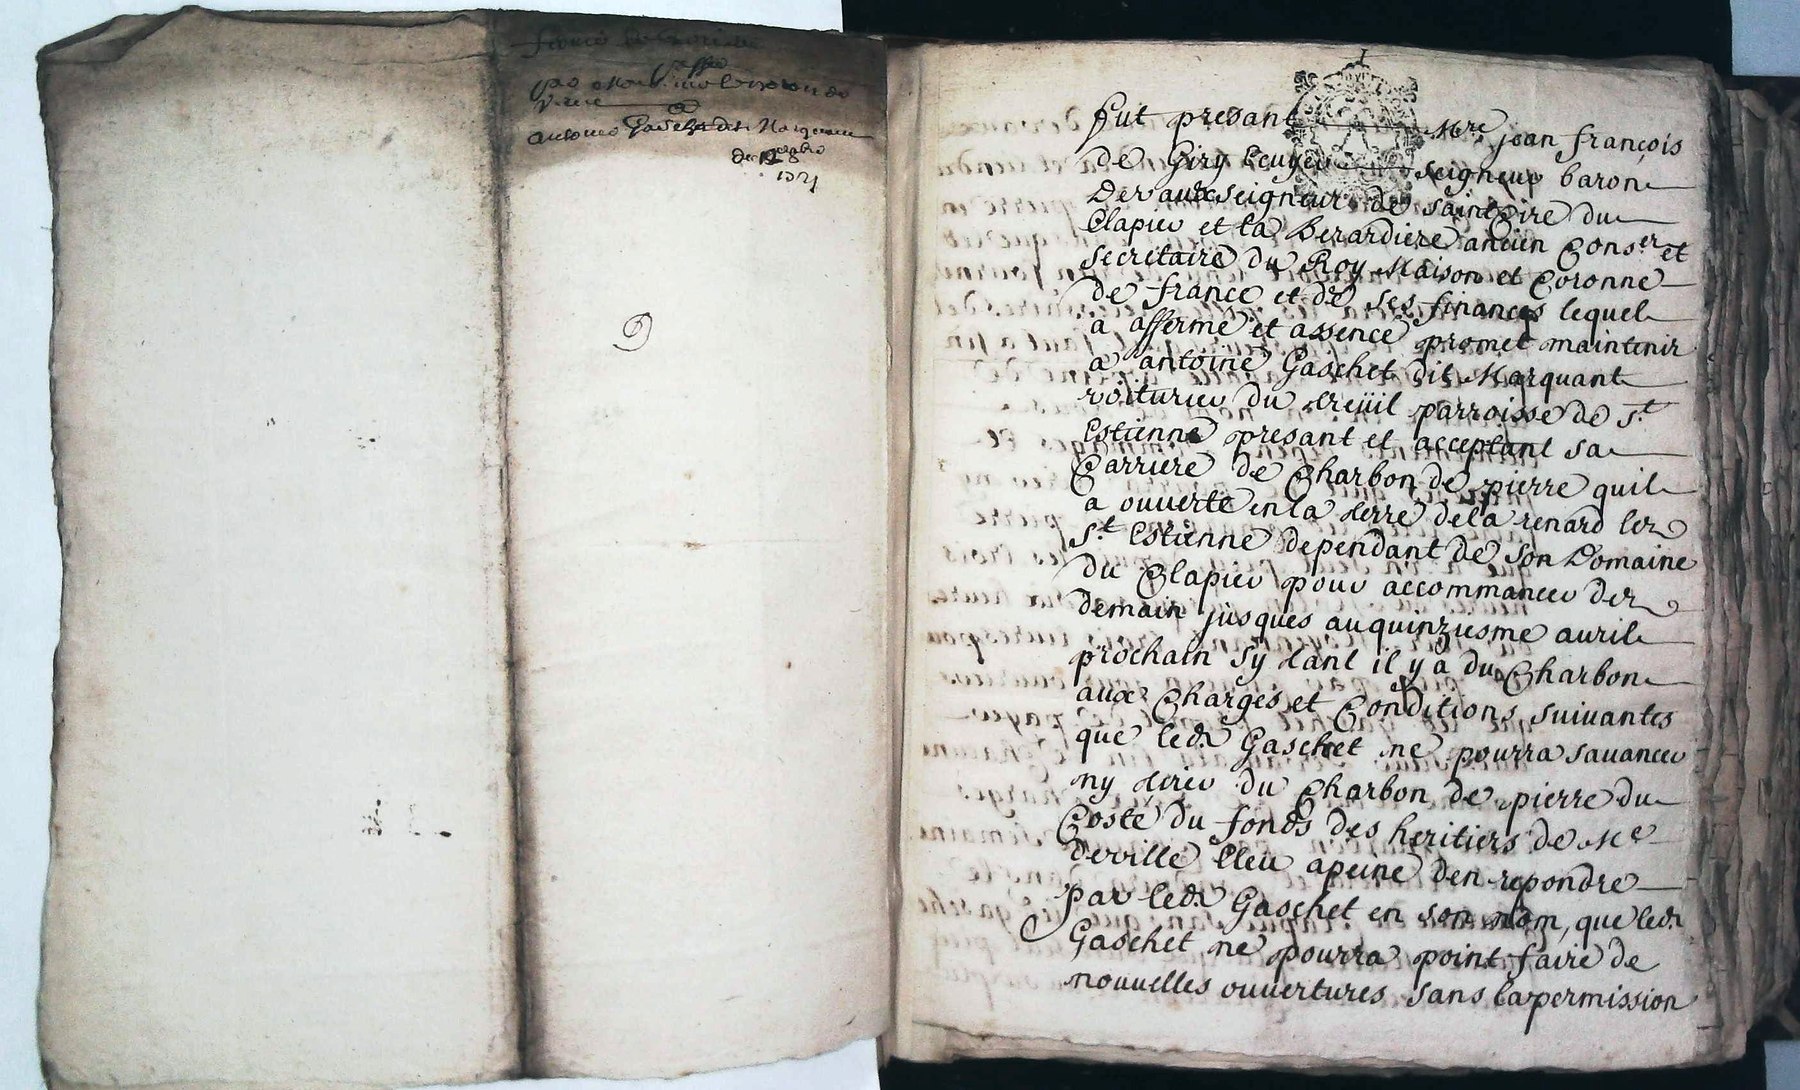 passé
par
a
antoine Gaschet dit Marquant
du 18
1721
fut presant Mre jean françois
de Giry Ecuyer seigneur baron
Devaux seigneur de saintCire du
Clapier et la berardiere ancien Conser et
secretaire du Roy Maison et Coronne
de france et de ses finances lequel
a affermé et assencé promet maintenir
a antoine Gaschet dit Marquant
voiturier du treüil parroisse de st
Estienne presant et acceptant sa
Carriere de Charbon de pierre quil
a ouuerte en la terre de la renard lez
st Estienne dependant de son Domaine
du Clapier pour accommancer dez
demain jusques au quinziesme auril
prochain sy tant il y a du Charbon
aux Charges et Conditions suiuantes
que ledt Gaschet ne pourra sauancer
ny tirer du Charbon de pierre du
Costé du fonds des heritiers de Me
deville Eleu a peine den repondre
par ledt Gaschet en son nom, que ledt
Gaschet ne pourra point faire de
nouuelles ouuertures sans la permission